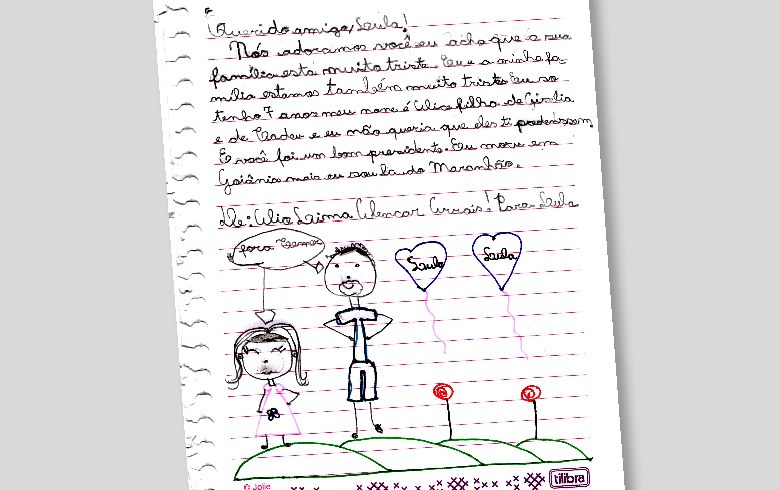 Querido amigo, Lula!
Nós adoramos você eu acho que a sua
família está muito triste. Eu e a minha fa-
mília estamos também muito triste Eu so
tenho 7 anos meu nome é filha de
e de Cadeu e eu não queria que eles ti prendessem.
E você foi um bom presidente. Eu moro em
Goiânia mais eu sou la do Maranhão.
De: Lima Alencar Arrais! Para: Lula
fora Temer
Lula
Lula
© Jolie
tilibra